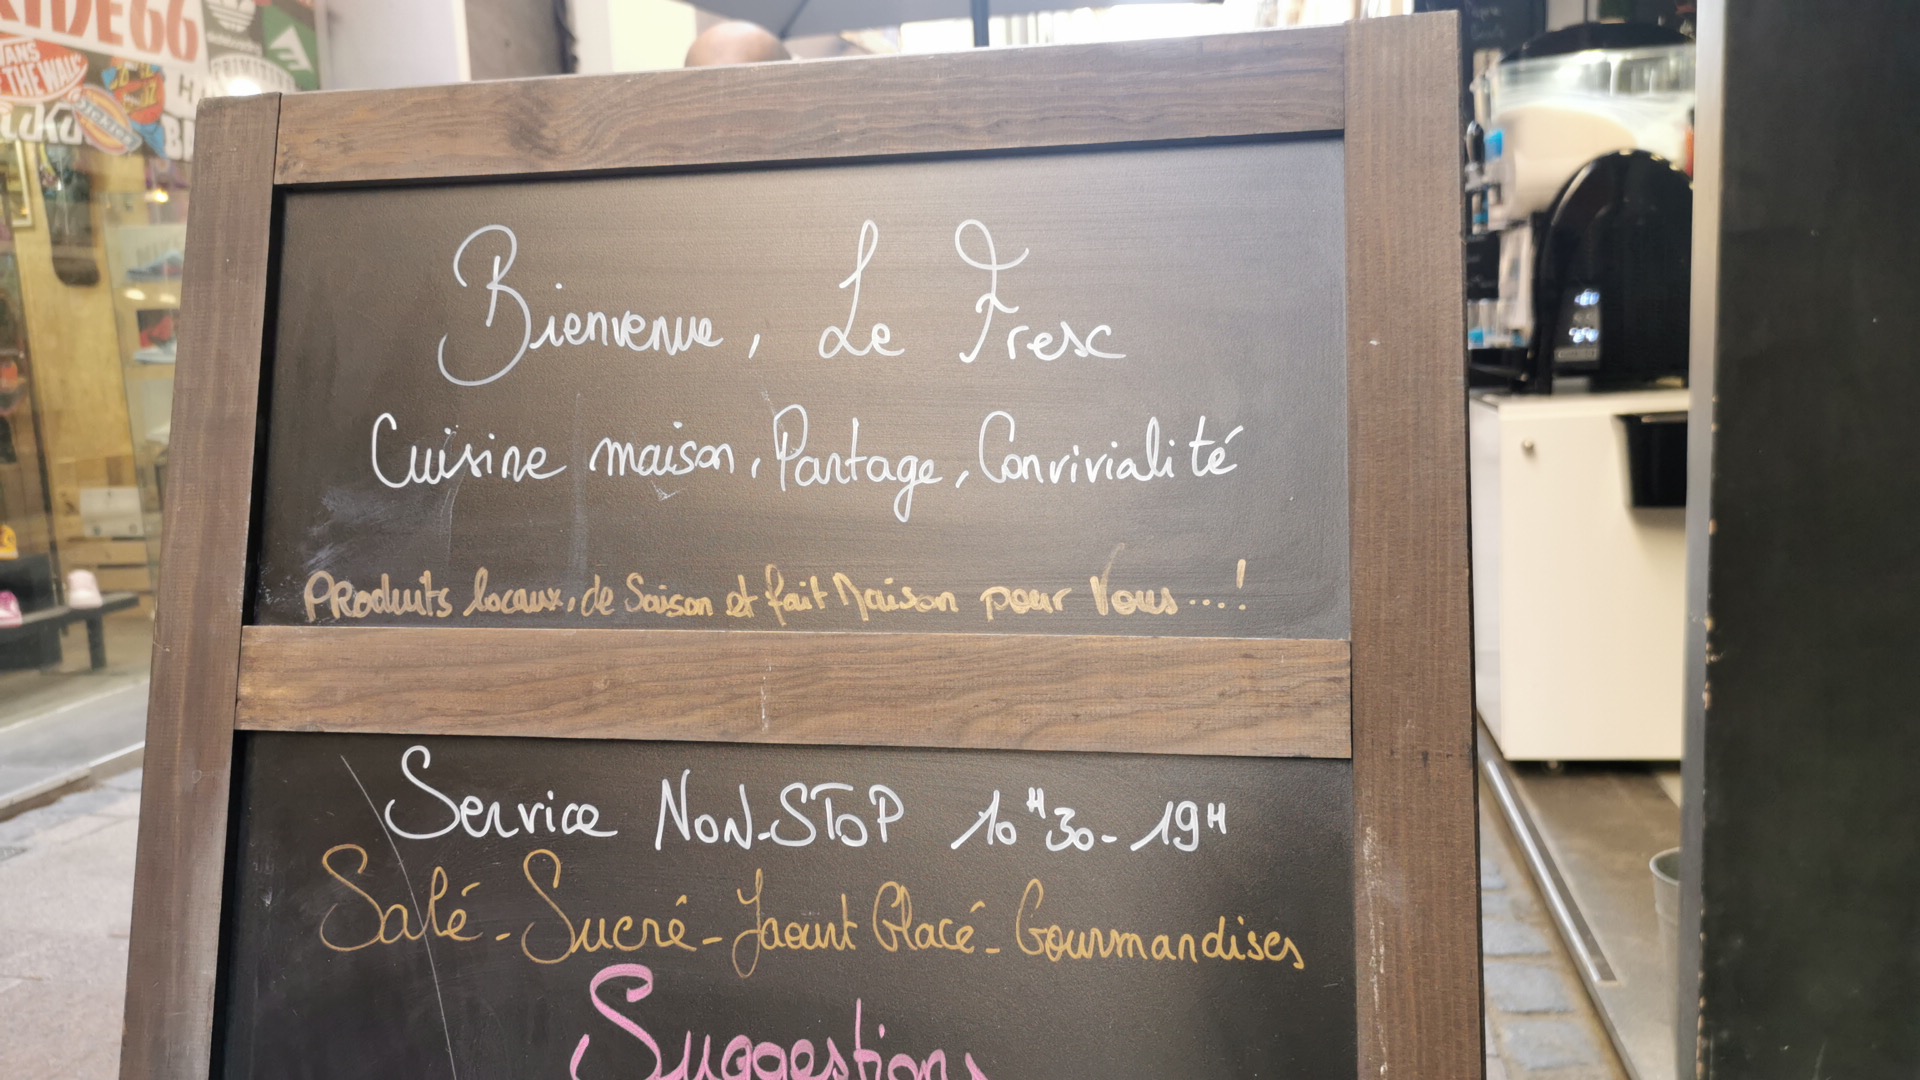 RIDE66
VANS
"THE WALL"
Dickies
Bienvenue, Le Fresc
Cuisine maison, Partage, Convivialité
Produits locaux, de Saison et fait Maison pour Vous....!
Service NON-STOP 10H30-19H
Salé-Sucré-Yaourt Glacé-Gourmandises
Suggestions